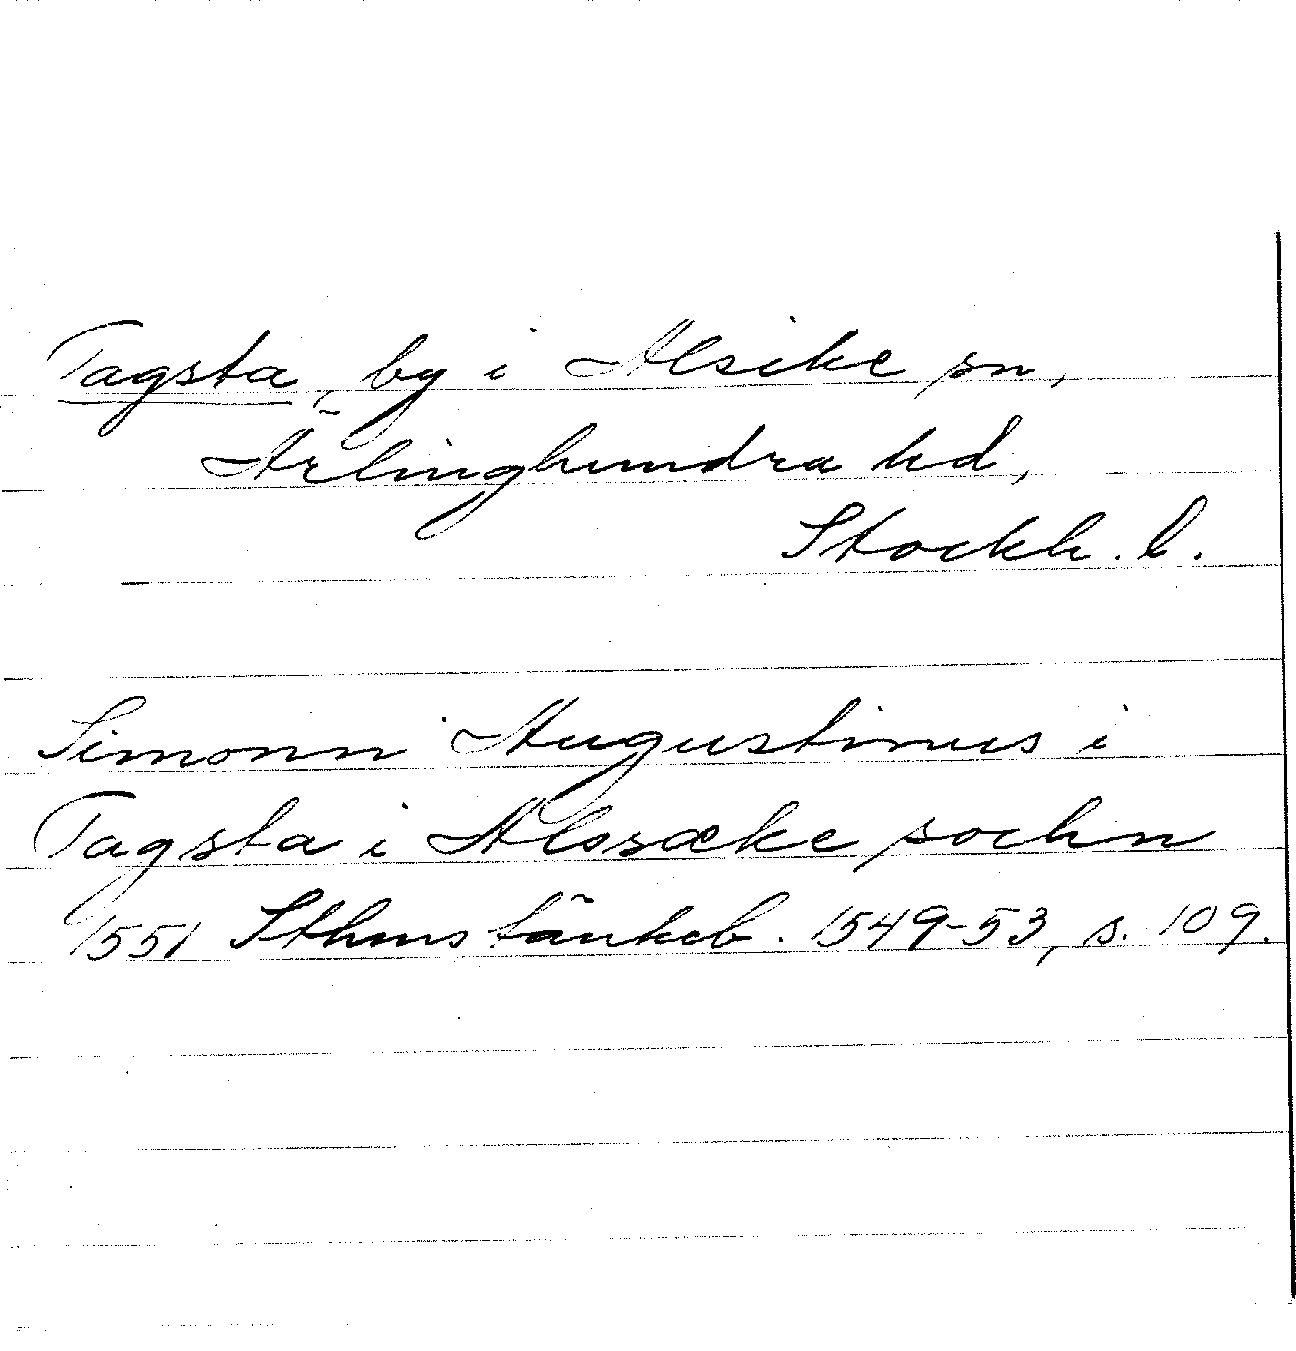 Tagsta, by i Alsike sn,
Ärlinghundra hd,
Stockh. l.
Simonn Augustinus i
Tagsta i Alssæke sochn
1551 Sthms tänkeb. 1549-53, s. 109.